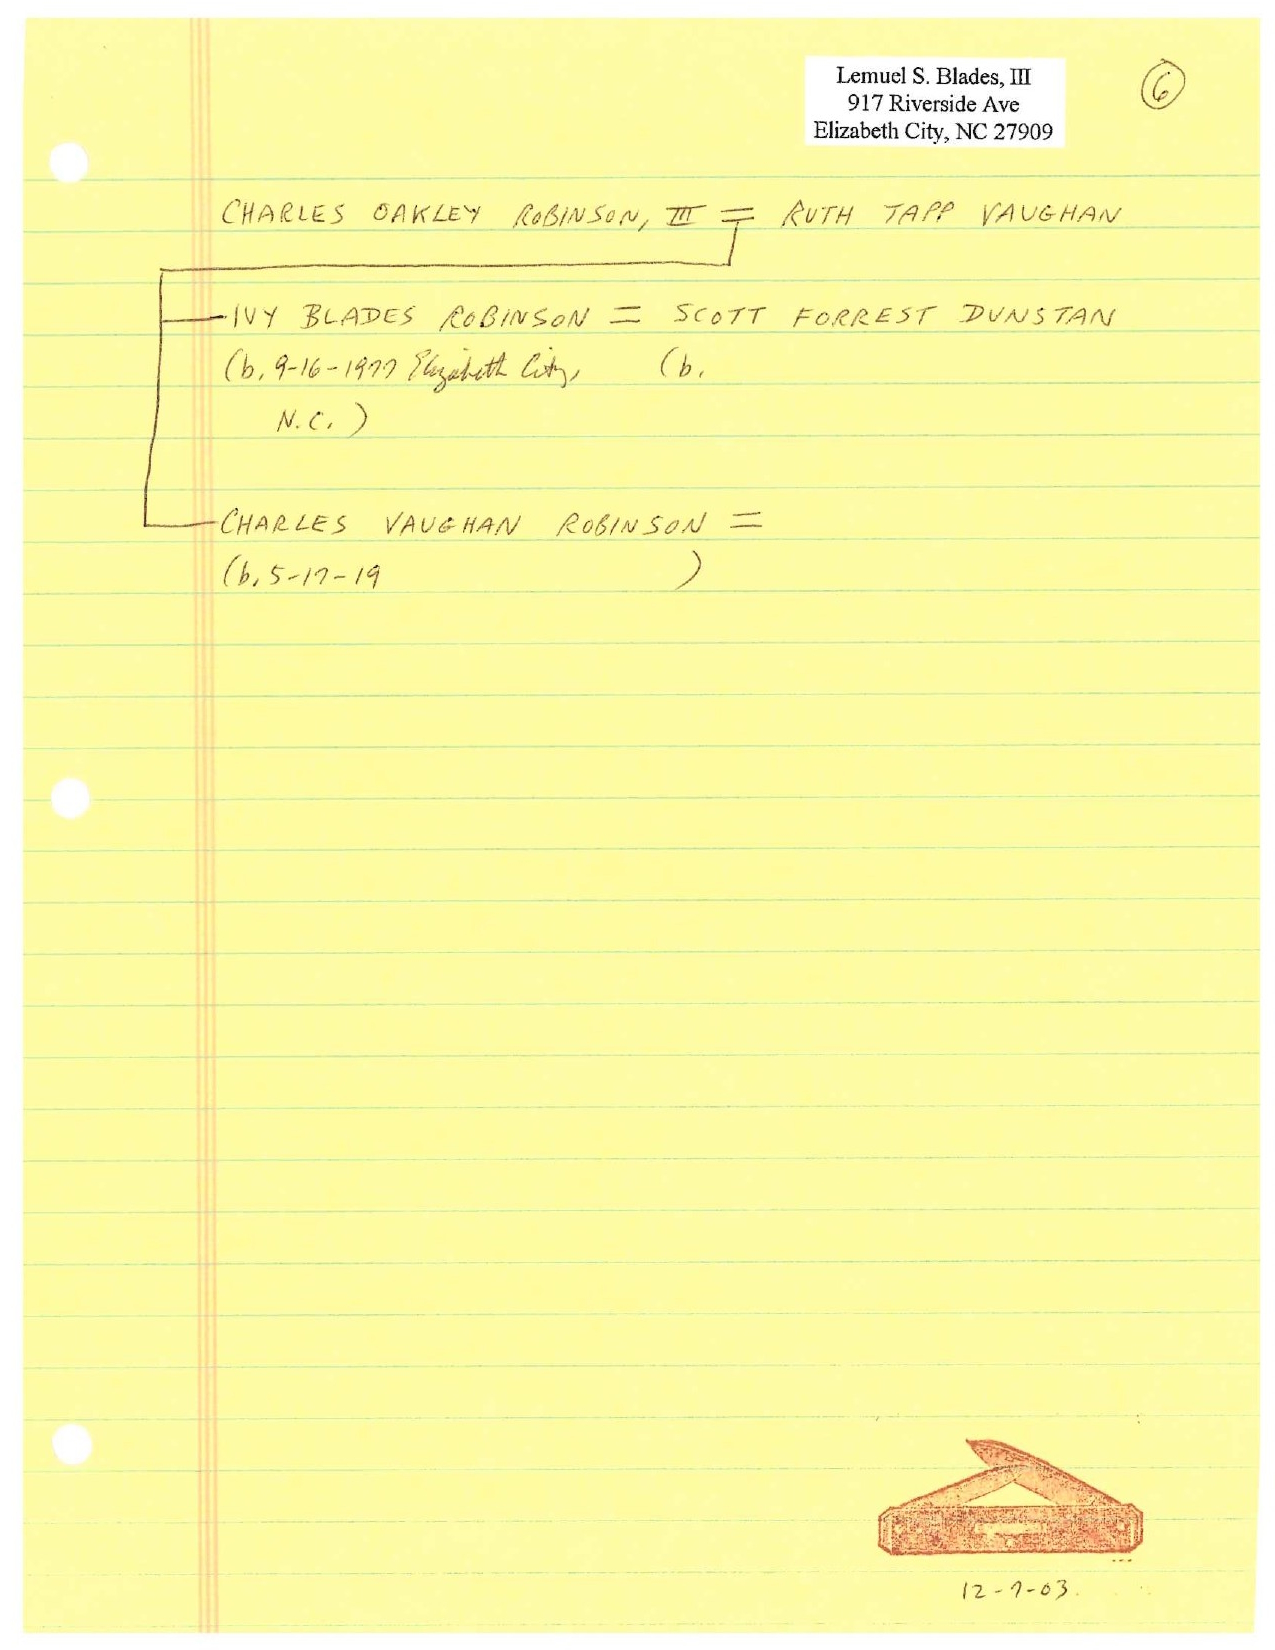 Lemuel S. Blades, III
917 Riverside Ave
Elizabeth City, NC 27909
6
CHARLES OAKLEY ROBINSON, III = RUTH TAPP VAUGHAN
IVY BLADES ROBINSON = SCOTT FORREST DUNSTAN
(b. 9-16-1977 Elizabeth City, (b.
N.C.)
CHARLES VAUGHAN ROBINSON =
(b. 5-17-19 )
12-7-03